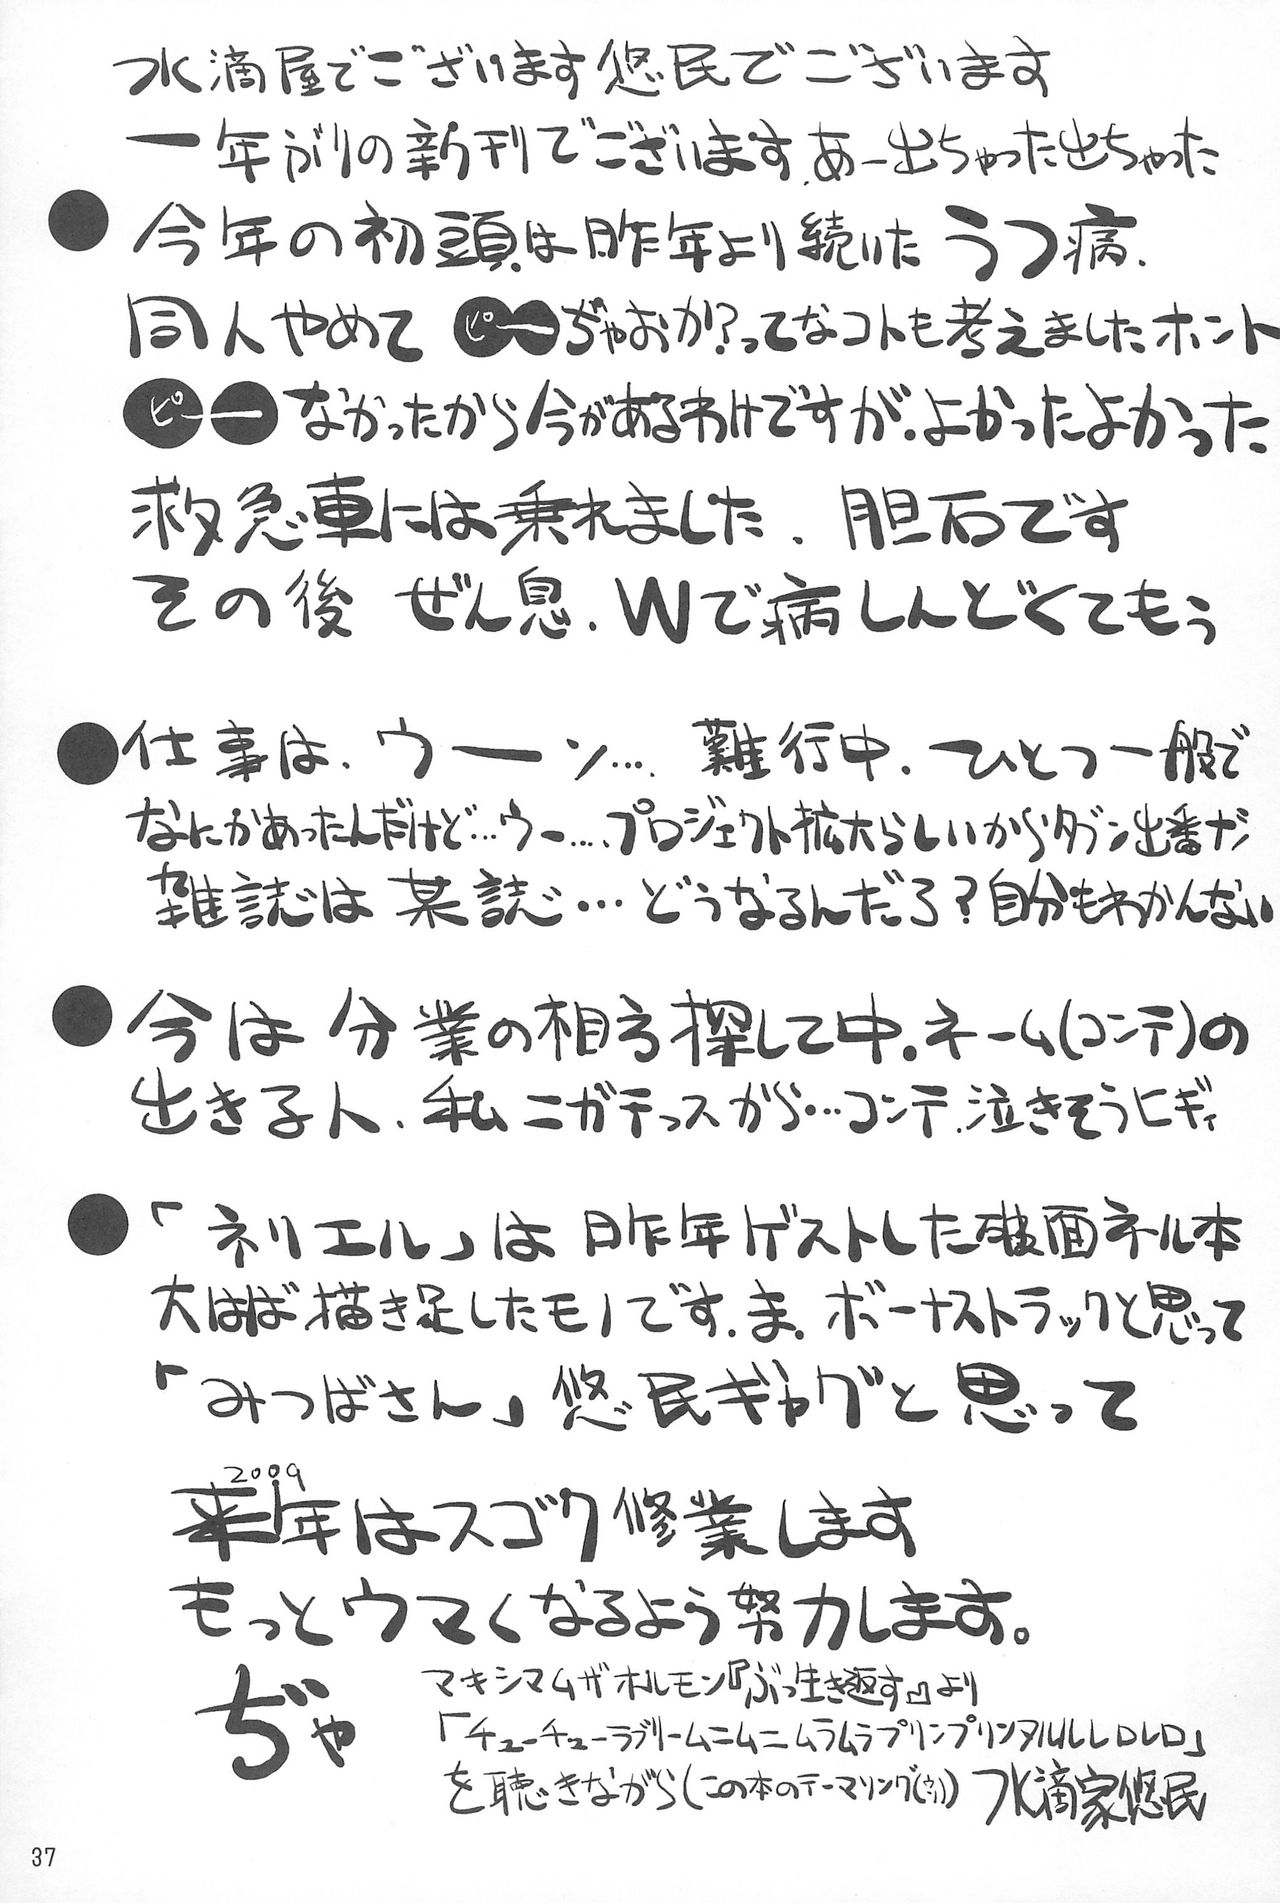 水滴屋でございます悠民でございます
一年ぶりの新刊でございます.あー出ちゃった出ちゃった
●今年の初頭は昨年より続いたうつ病.
同人やめてピーぢゃおか?ってなコトも考えましたホント
ピーなかったから今があるわけですが.よかったよかった
救急車には乗れました.胆石です
その後 ぜん息.Wで病しんどくてもう
●仕事は.ウーン….難行中.ひとつ一般で
なにかあったんだけど…ウー….プロジェクト拡大らしいからタブン出番ナシ
雑誌は某誌…どうなるんだろ?自分もわかんない
●今は分業の相方探して中.ネーム(コンテ)の
出きる人.私ニガテっスから…コンテ.泣きそうヒギィ
●「ネリエル」は昨年ゲストした破面ネル本
大はば描き足したモノです.ま.ボーナストラックと思って
「みつばさん」悠民ギャグと思って
2009
来年はスゴク修業します
もっとウマくなるよう努力します。
ぢゃ
マキシマムザホルモン『ぶっ生き返す』より
「チューチューラブリームニムニムラムラプリンプリンヌルルレロレロ」
を聴きながら(この本のテーマソング(ウソ))水滴家悠民
37